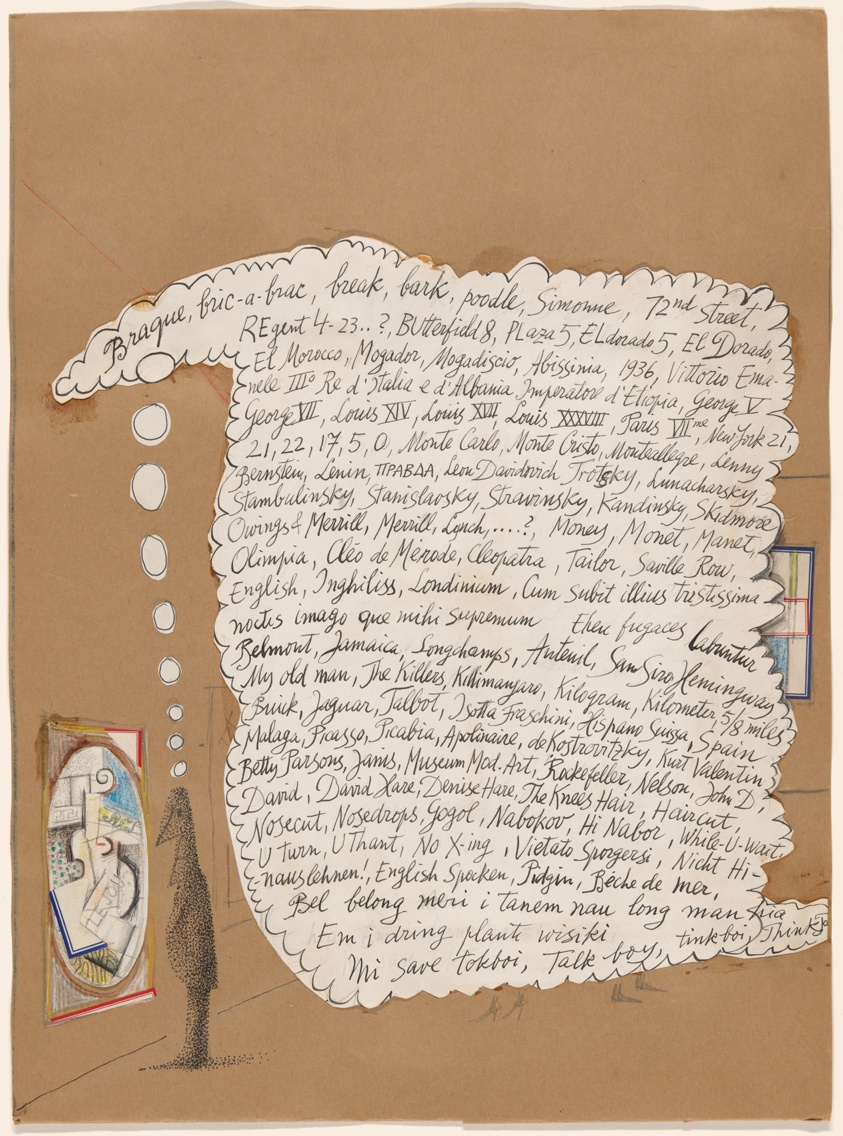 Braque, bric-a-brac, break, bark, poodle, Simonne, 72nd Street,
REgent 4-23..?, BUtterfield 8, PLaza 5, ELdorado 5, El Dorado,
El Morocco, Mogador, Mogadiscio, Abissinia, 1936, Vittorio Ema-
nele IIIº Re d'Italia e d'Albania Imperatore d'Etiopia, George V
George VII, Louis XIV, Louis XVII, Louis XXXVIII, Paris VIIme, New York 21,
21, 22, 17, 5, 0, Monte Carlo, Monte Cristo, Monteallegre, Lenny
Bernstein, Lenin, ПРАВДА, Leon Davidovich Trotsky, Lunacharsky,
Stambulinsky, Stanislavsky, Stravinsky, Kandinsky, Skidmore
Owings & Merrill, Merrill, Lynch,....?, Money, Monet, Manet,
Olimpia, Cléo de Mérode, Cleopatra, Tailor, Saville Row,
English, Inghiliss, Londinium, Cum subit illius tristissima
noctis imago que mihi supremum Eheu fugaces labuntur
Belmont, Jamaica, Longchamps, Auteuil, San Siro, Hemingway
My old man, The Killers, Killimanjaro, Kilogram, Kilometer, 5/8 miles
Buick, Jaguar, Talbot, Isotta Fraschini, Hispano Suissa, Spain
Malaga, Picasso, Picabia, Apolinaire, de Kostrovitzky, Kurt Valentin
Betty Parsons, Janis, Museum Mod. Art, Rockefeller, Nelson, John D,
David, David Hare, Denise Hare, The Knees Hair, Haircut,
Nosecut, Nosedrops, Gogol, Nabokov, Hi Nabor, While-U-Wait,
U turn, U Thant, No X-ing, Vietato Sporgersi, Nicht Hi-
nauslehnen!, English Spocken, Pidgin, Bèche de mer,
Bel belong meri i tanem nau long man hia
Em i dring planti wisiki
Mi save tokboi, Talk boy, tinkboi, Think